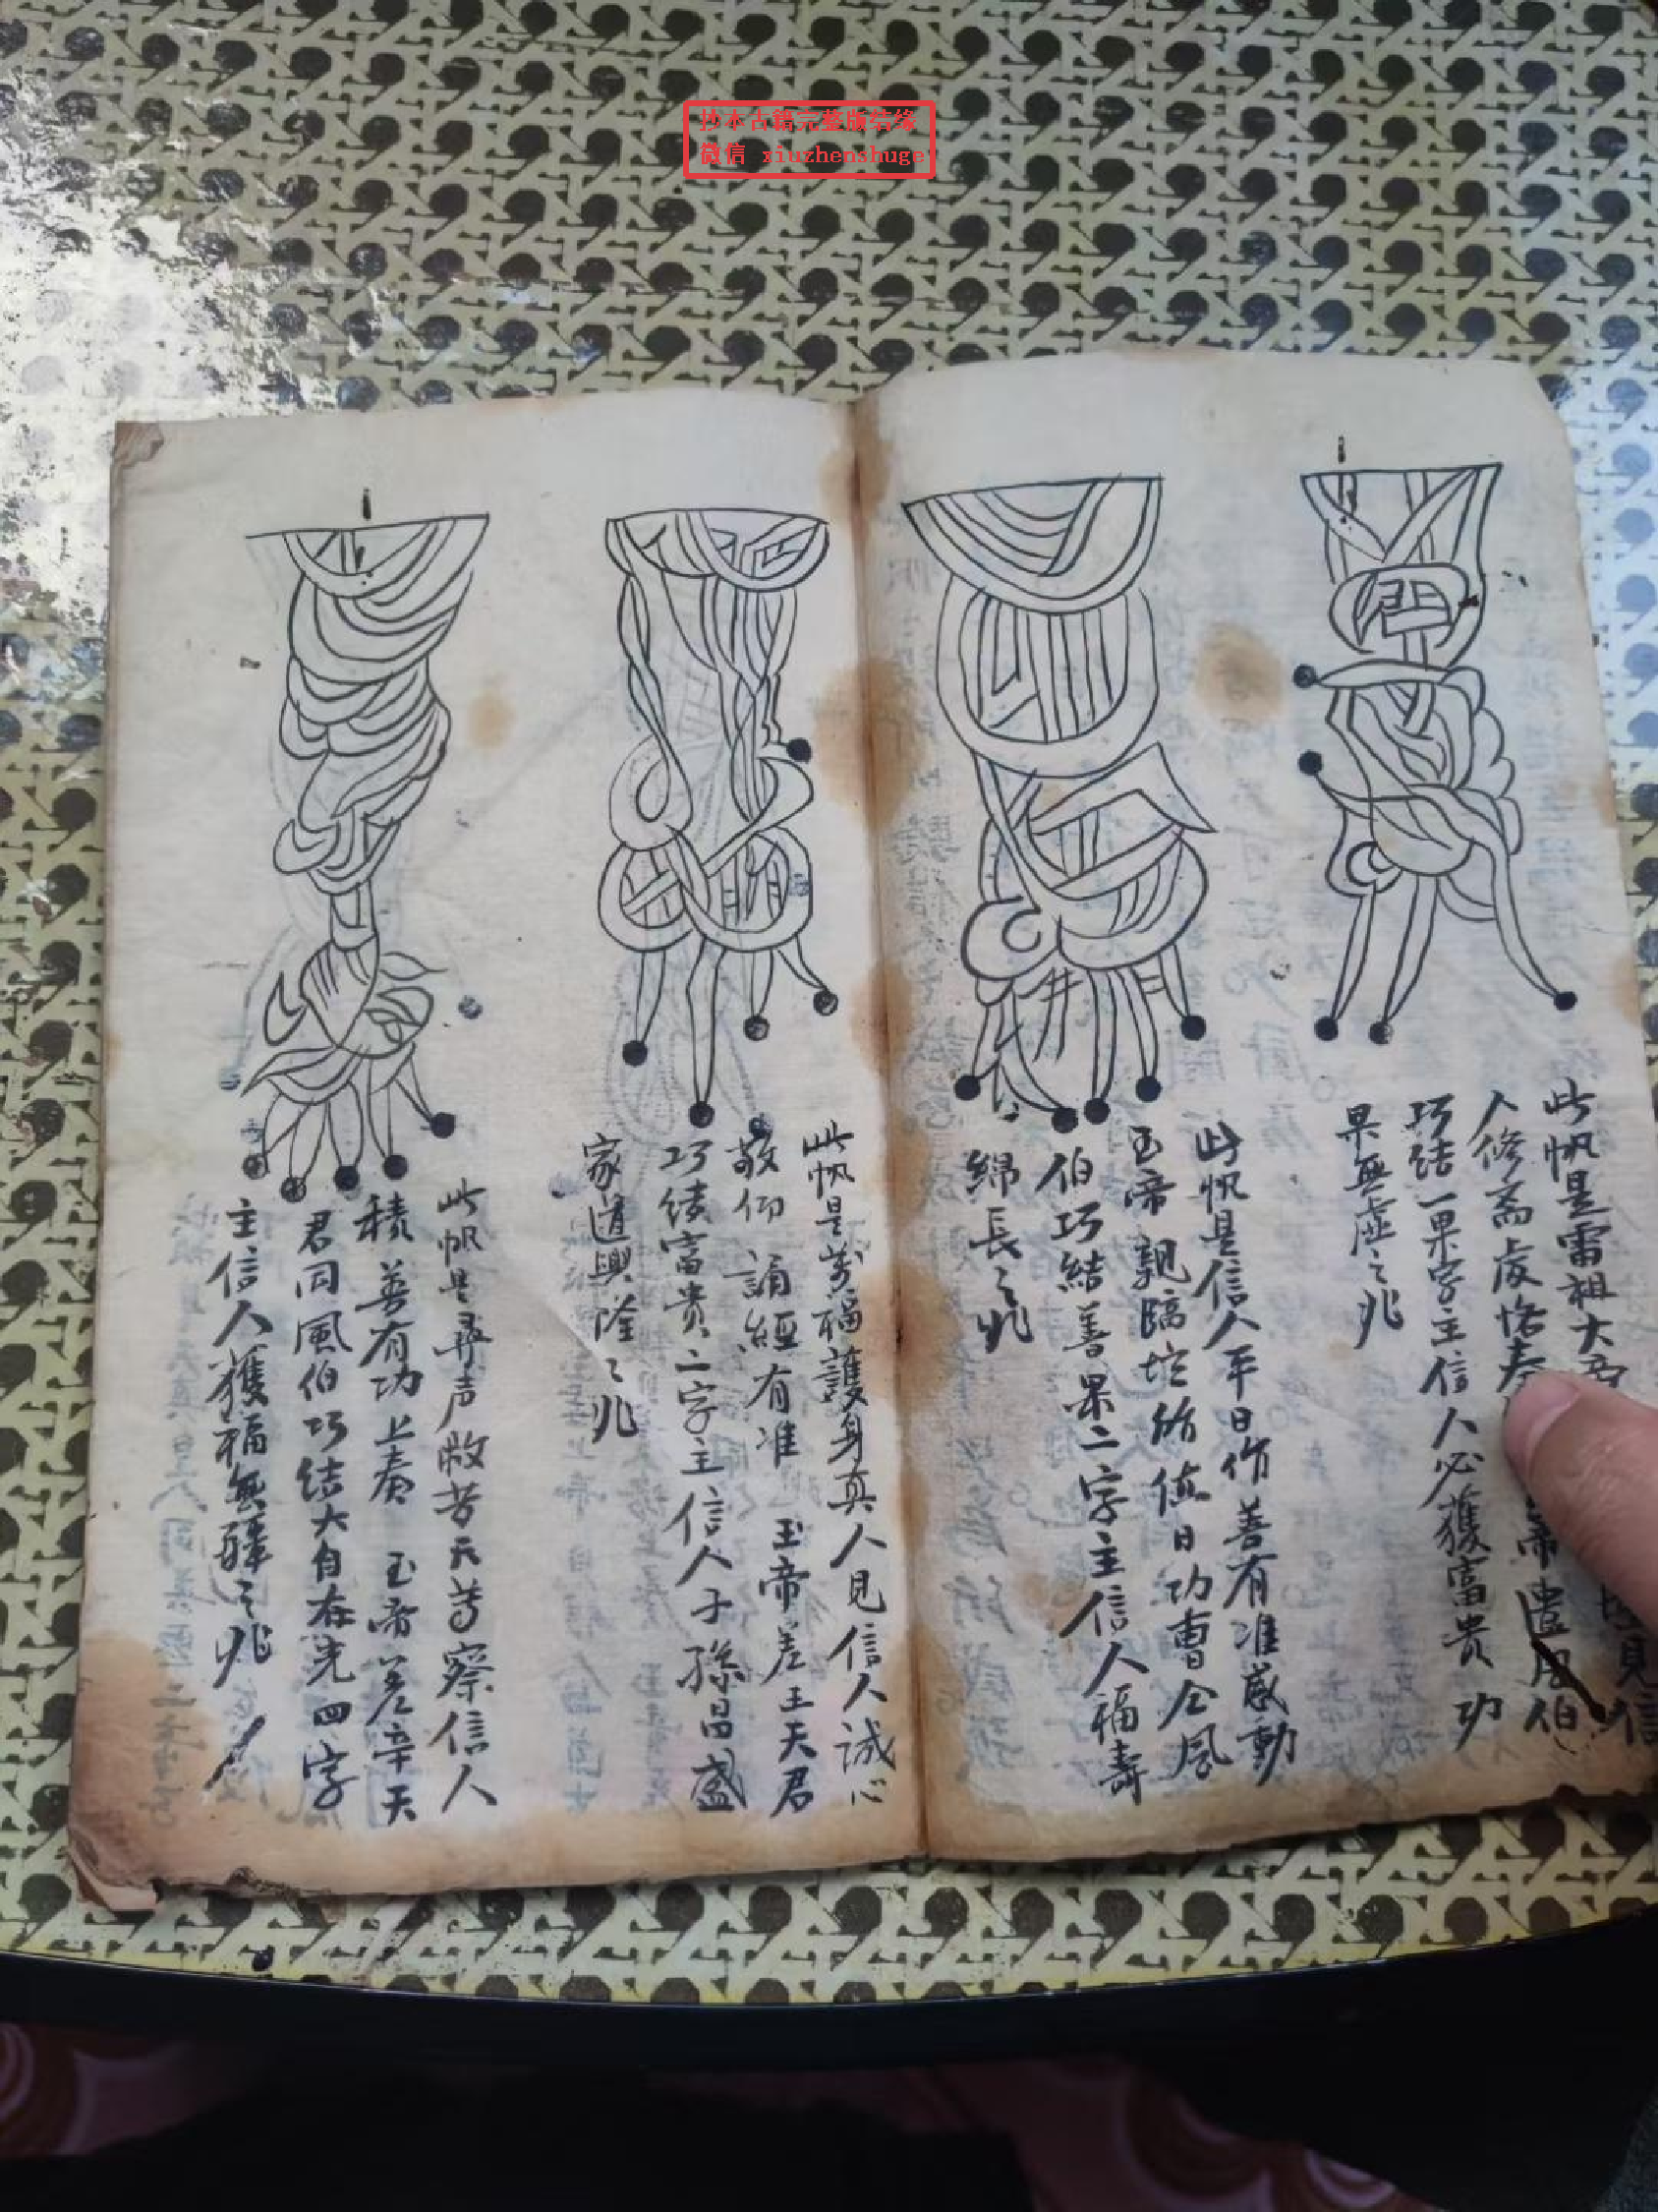 抄本古籍完整版结缘
微信 xiuzhenshuge
此帆是雷祖大帝 見信
人修齋虔恪奏 帝遣风伯
巧结一果字主信人必獲富贵功
果無虚之兆
此帆是信人平日作善有准感動
玉帝親臨坛所值日功曹仝風
伯巧結善果二字主信人福壽
綿長之兆
此帆是萬福護身真人見信人誠心
敬仰誦經有准 玉帝差王天君
巧结富贵二字主信人子孫昌盛
家道興隆之兆
此帆是尋声救苦天尊察信人
積善有功上奏 玉帝差辛天
君同風伯巧结大自在光四字
主信人獲福無疆之兆